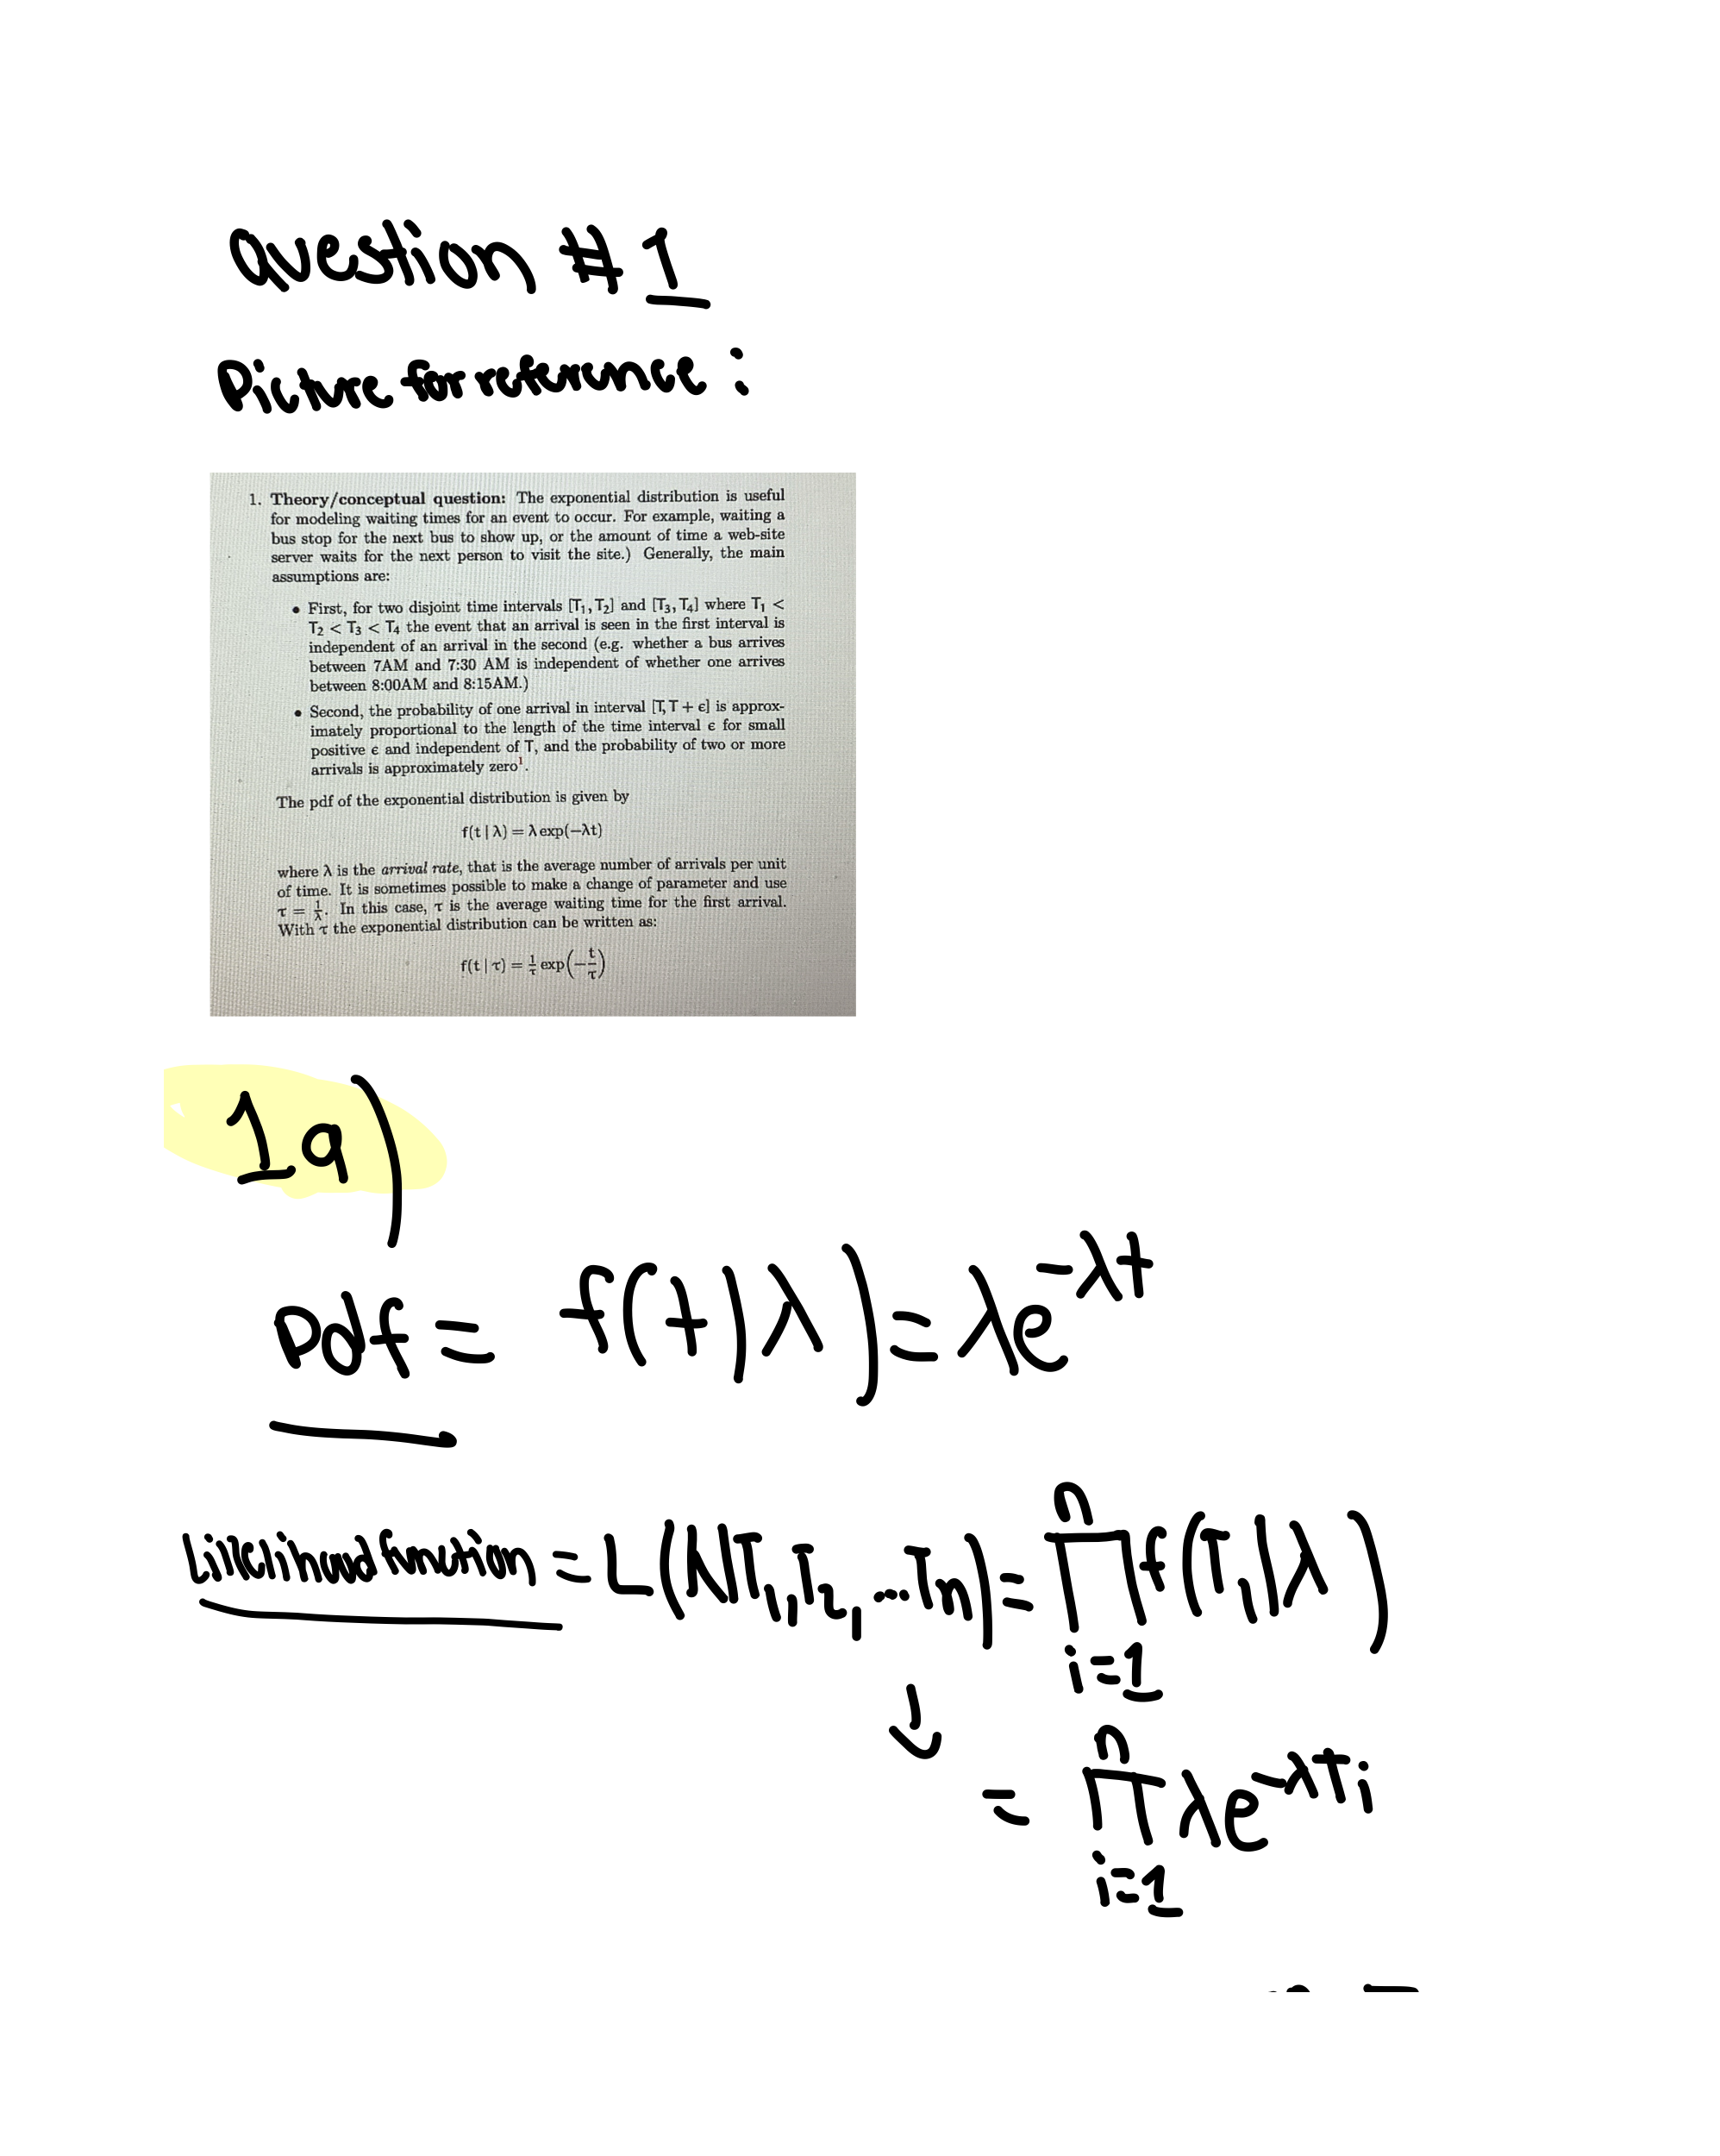 Question # 1
Picture for reference :
1. Theory/conceptual question: The exponential distribution is useful
for modeling waiting times for an event to occur. For example, waiting a
bus stop for the next bus to show up, or the amount of time a web-site
server waits for the next person to visit the site.) Generally, the main
assumptions are:
• First, for two disjoint time intervals [T₁, T₂] and [T₃, T₄] where T₁ <
T₂ < T₃ < T₄ the event that an arrival is seen in the first interval is
independent of an arrival in the second (e.g. whether a bus arrives
between 7AM and 7:30 AM is independent of whether one arrives
between 8:00AM and 8:15AM.)
• Second, the probability of one arrival in interval [T, T + ϵ] is approx-
imately proportional to the length of the time interval ϵ for small
positive ϵ and independent of T, and the probability of two or more
arrivals is approximately zero¹.
The pdf of the exponential distribution is given by
f(t | λ) = λ exp(−λt)
where λ is the arrival rate, that is the average number of arrivals per unit
of time. It is sometimes possible to make a change of parameter and use
τ = 1/λ. In this case, τ is the average waiting time for the first arrival.
With τ the exponential distribution can be written as:
f(t | τ) = 1/τ exp(−t/τ)
1a)
Pdf = f(t|λ) = λe^{-λt}
Likelihood function = L(λ|T₁,T₂,...Tn) = ∏_{i=1}^{n} f(T₁|λ)
↓
= ∏_{i=1}^{n} λe^{-λTi}